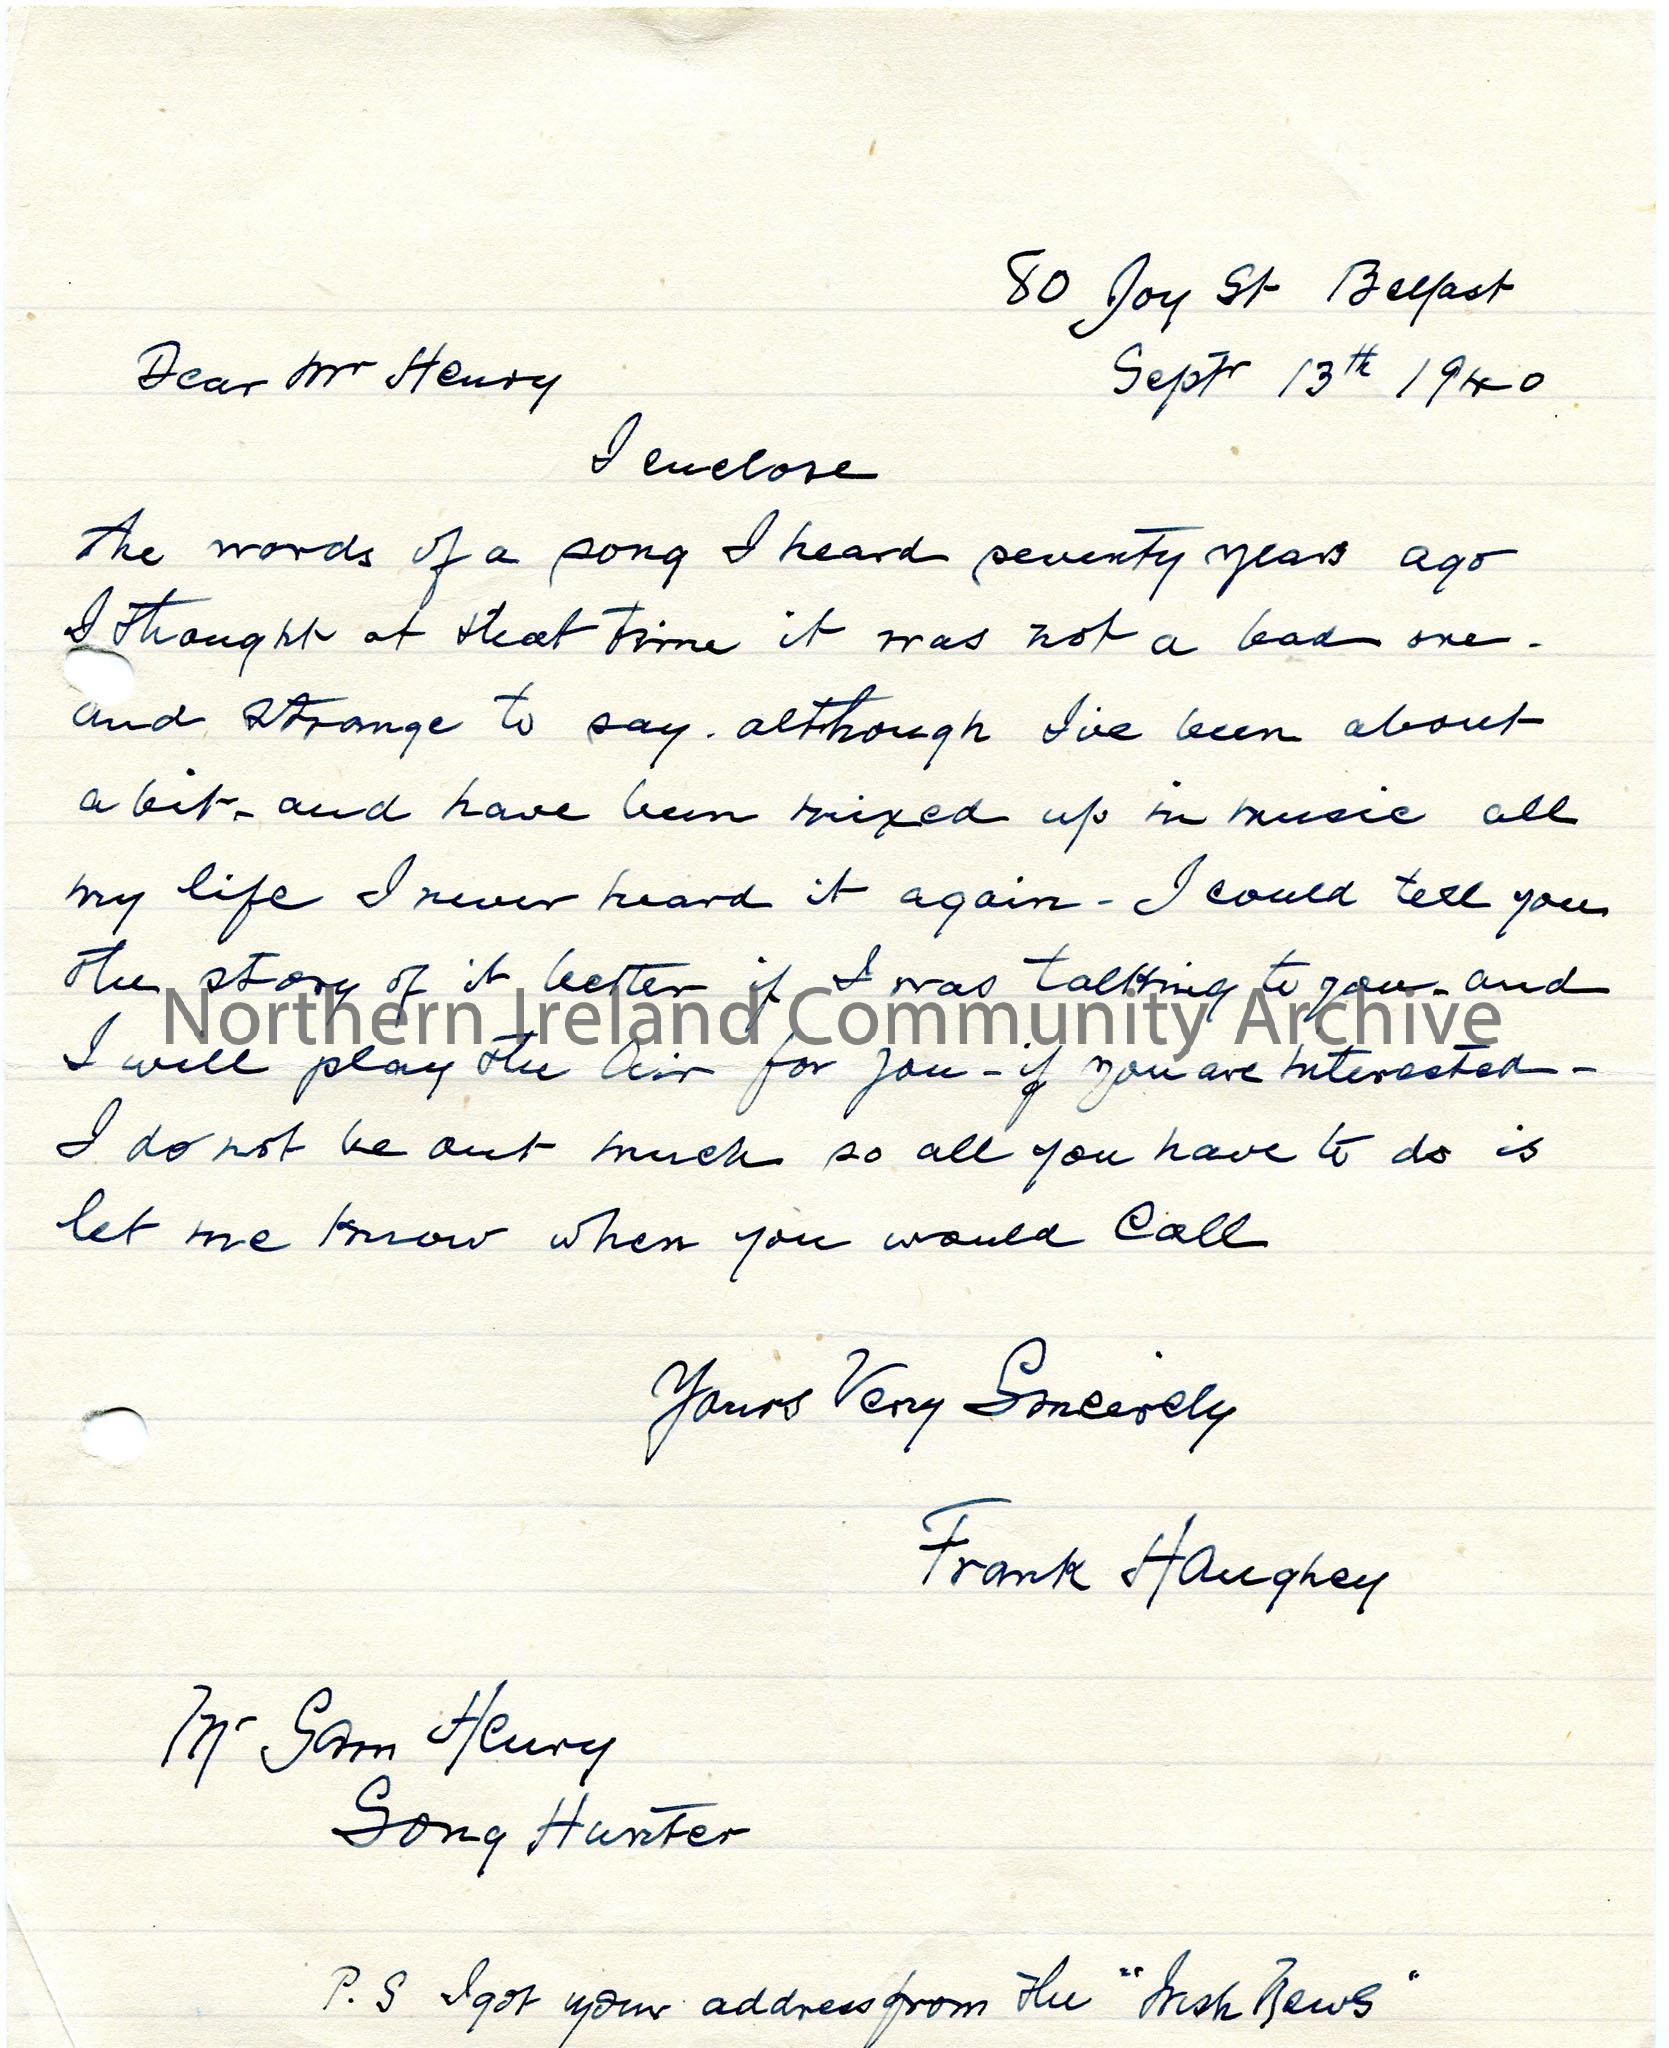 80 Joy St Belfast
Septr 13th 1940
Dear Mr Henry
I enclose
the words of a song I heard seventy years ago
I thought at that time it was not a bad one -
and strange to say. although I've been about
a bit - and have been mixed up in music all
my life I never heard it again - I could tell you
the story of it better if I was talking to you - and
Northern Ireland Community Archive
I will play the Air for you - if you are interested -
I do not be out much so all you have to do is
let me know when you would Call
Yours Very Sincerely
Frank Haughey
Mr Sam Henry
Song Hunter
P.S I got your address from the "Irish News"